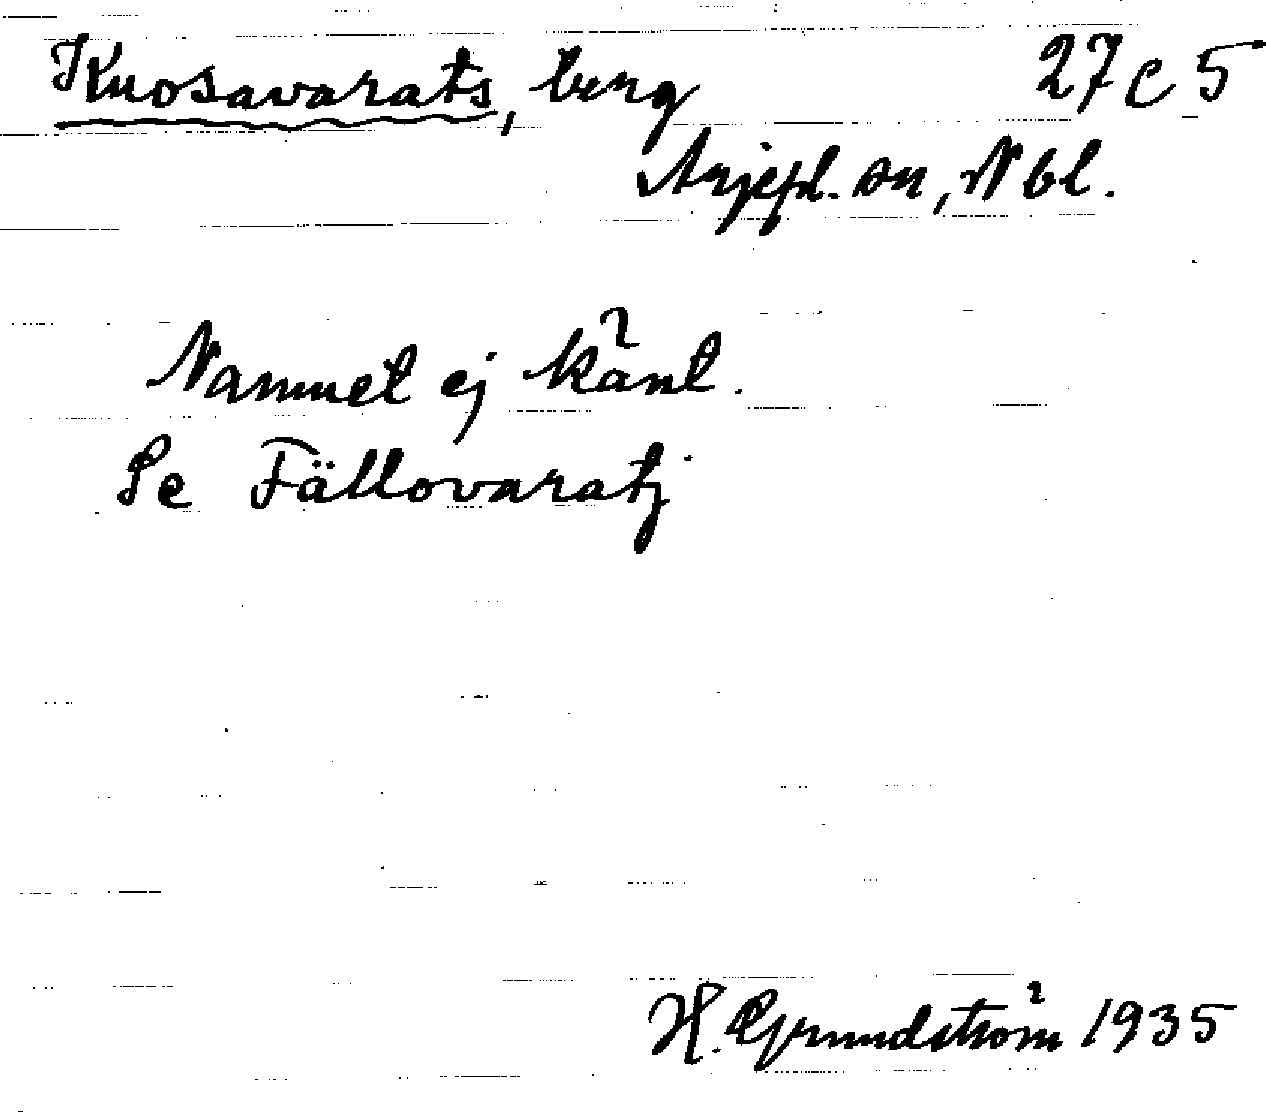 Kuosavarats, berg 27 C 5
Arjepl. sn, Nbl.
Namnet ej känt.
Se Fällovaratj
H. Grundström 1935